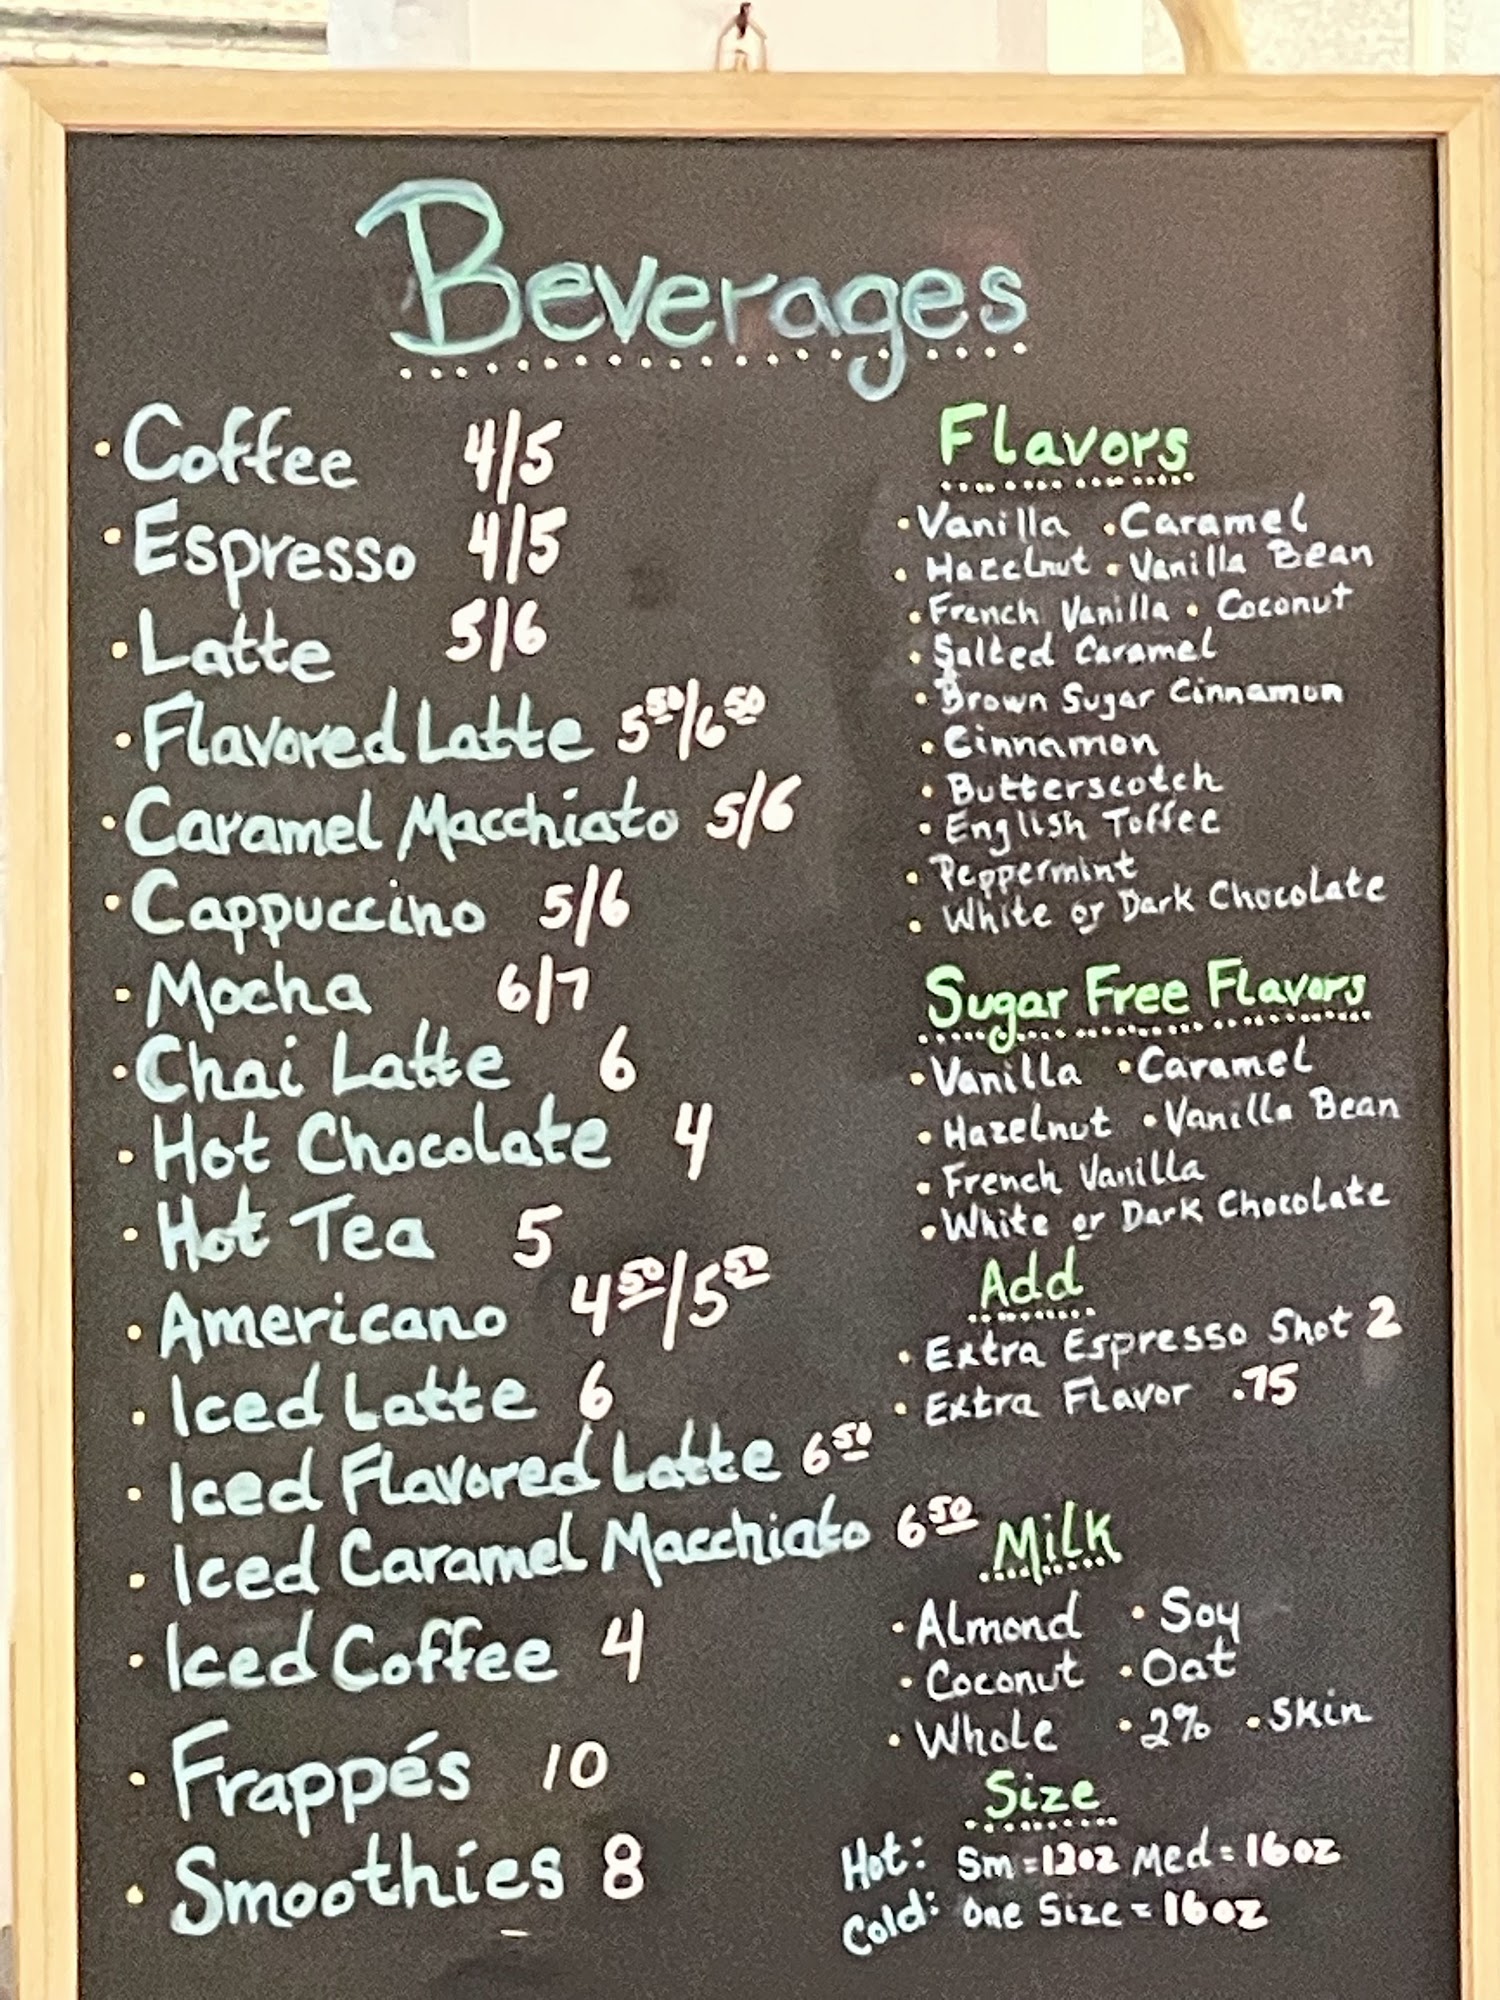 Beverages
• Coffee 4/5
• Espresso 4/5
• Latte 5/6
• Flavored Latte 5 50/6 50
• Caramel Macchiato 5/6
• Cappuccino 5/6
• Mocha 6/7
• Chai Latte 6
• Hot Chocolate 4
• Hot Tea 5
• Americano 4 50/5 50
• Iced Latte 6
• Iced Flavored Latte 6 50
• Iced Caramel Macchiato 6 50
• Iced Coffee 4
• Frappés 10
• Smoothies 8
Flavors
• Vanilla • Caramel
• Hazelnut • Vanilla Bean
• French Vanilla • Coconut
• Salted Caramel
• Brown Sugar Cinnamon
• Cinnamon
• Butterscotch
• English Toffee
• Peppermint
• White or Dark Chocolate
Sugar Free Flavors
• Vanilla • Caramel
• Hazelnut • Vanilla Bean
• French Vanilla
• White or Dark Chocolate
Add
• Extra Espresso Shot 2
• Extra Flavor .75
Milk
• Almond • Soy
• Coconut • Oat
• Whole • 2% • Skin
Size
Hot: Sm = 12oz Med = 16oz
Cold: One Size = 16oz